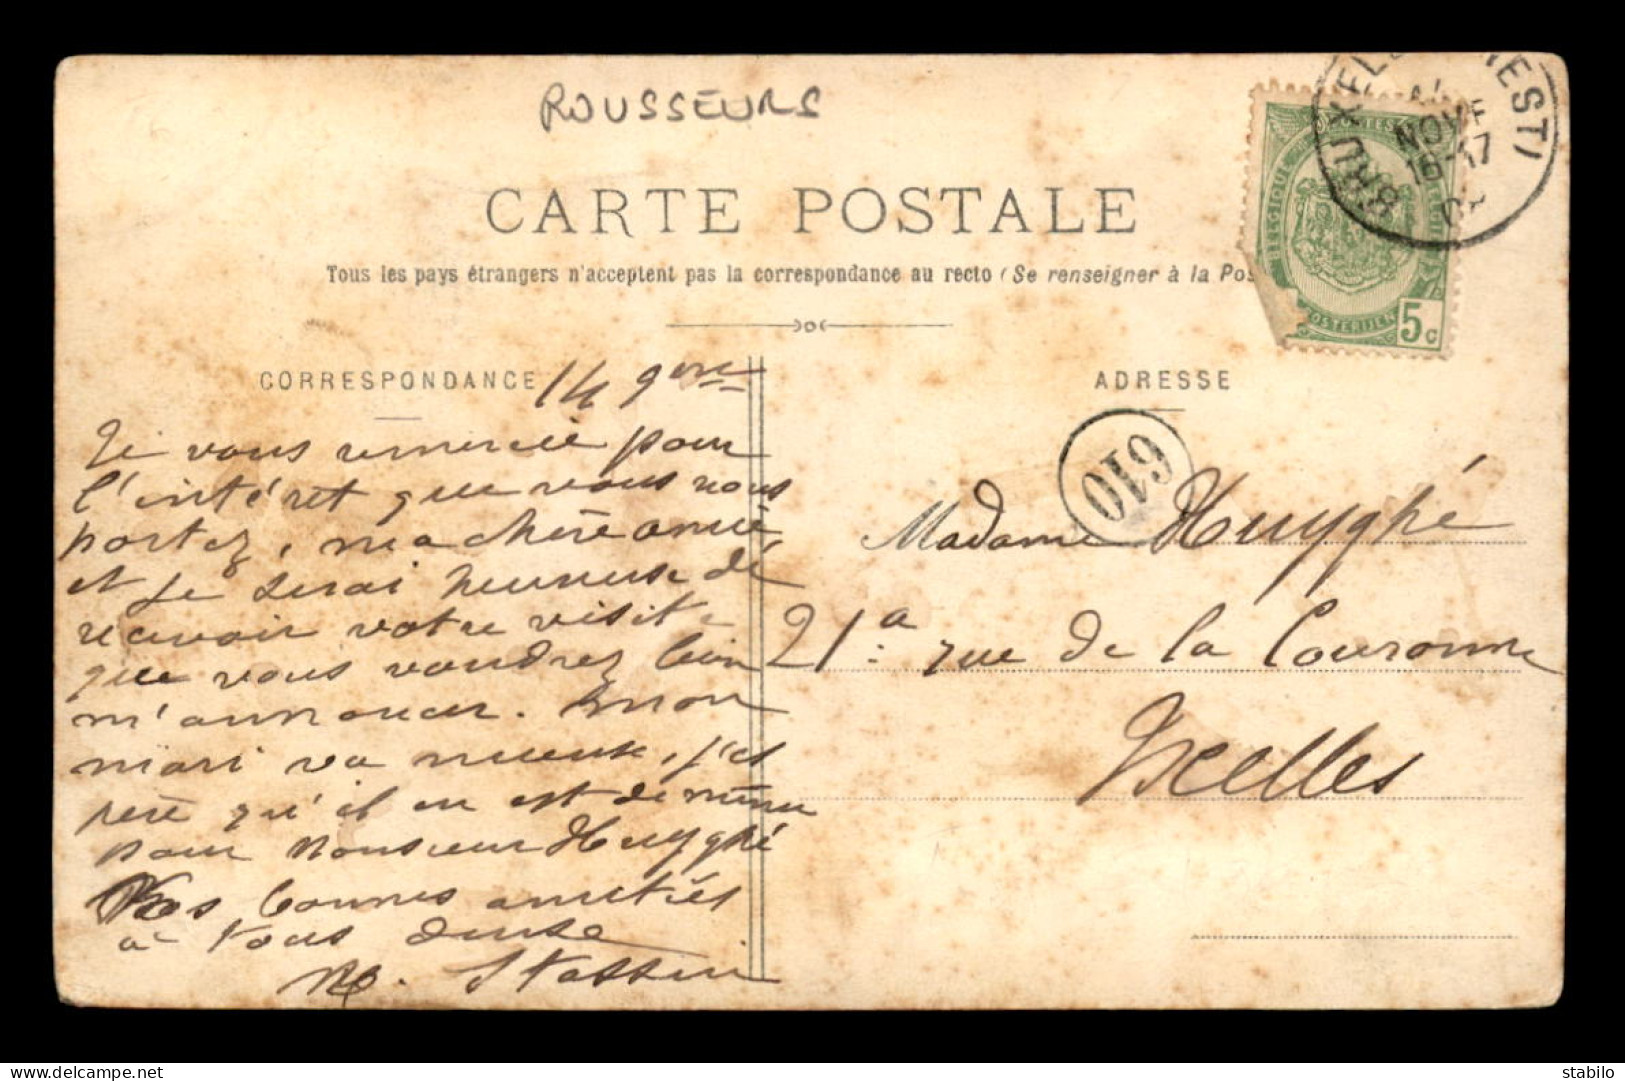 ROUSSEURS
CARTE POSTALE
Tous les pays étrangers n'acceptent pas la correspondance au recto (Se renseigner à la Pos
BRUXELLES OUEST)
NOVE
16-17
BELGIQUE
POSTERIJEN
5c
CORRESPONDANCE
14 9bre
ADRESSE
610
Je vous remercie pour
l'intérêt que vous nous
portez, ma chère amie
et je serai heureuse de
recevoir votre visite
que vous voudrez bien
m'annoncer. mon
mari va mieux, j'es
père qu'il en est de même
pour Monsieur Huyghé
Nos bonnes amitiés
à tous deux
M. Stassin
Madame Huyghé
21a rue de la Couronne
Ixelles
delcampe.net
stabilo